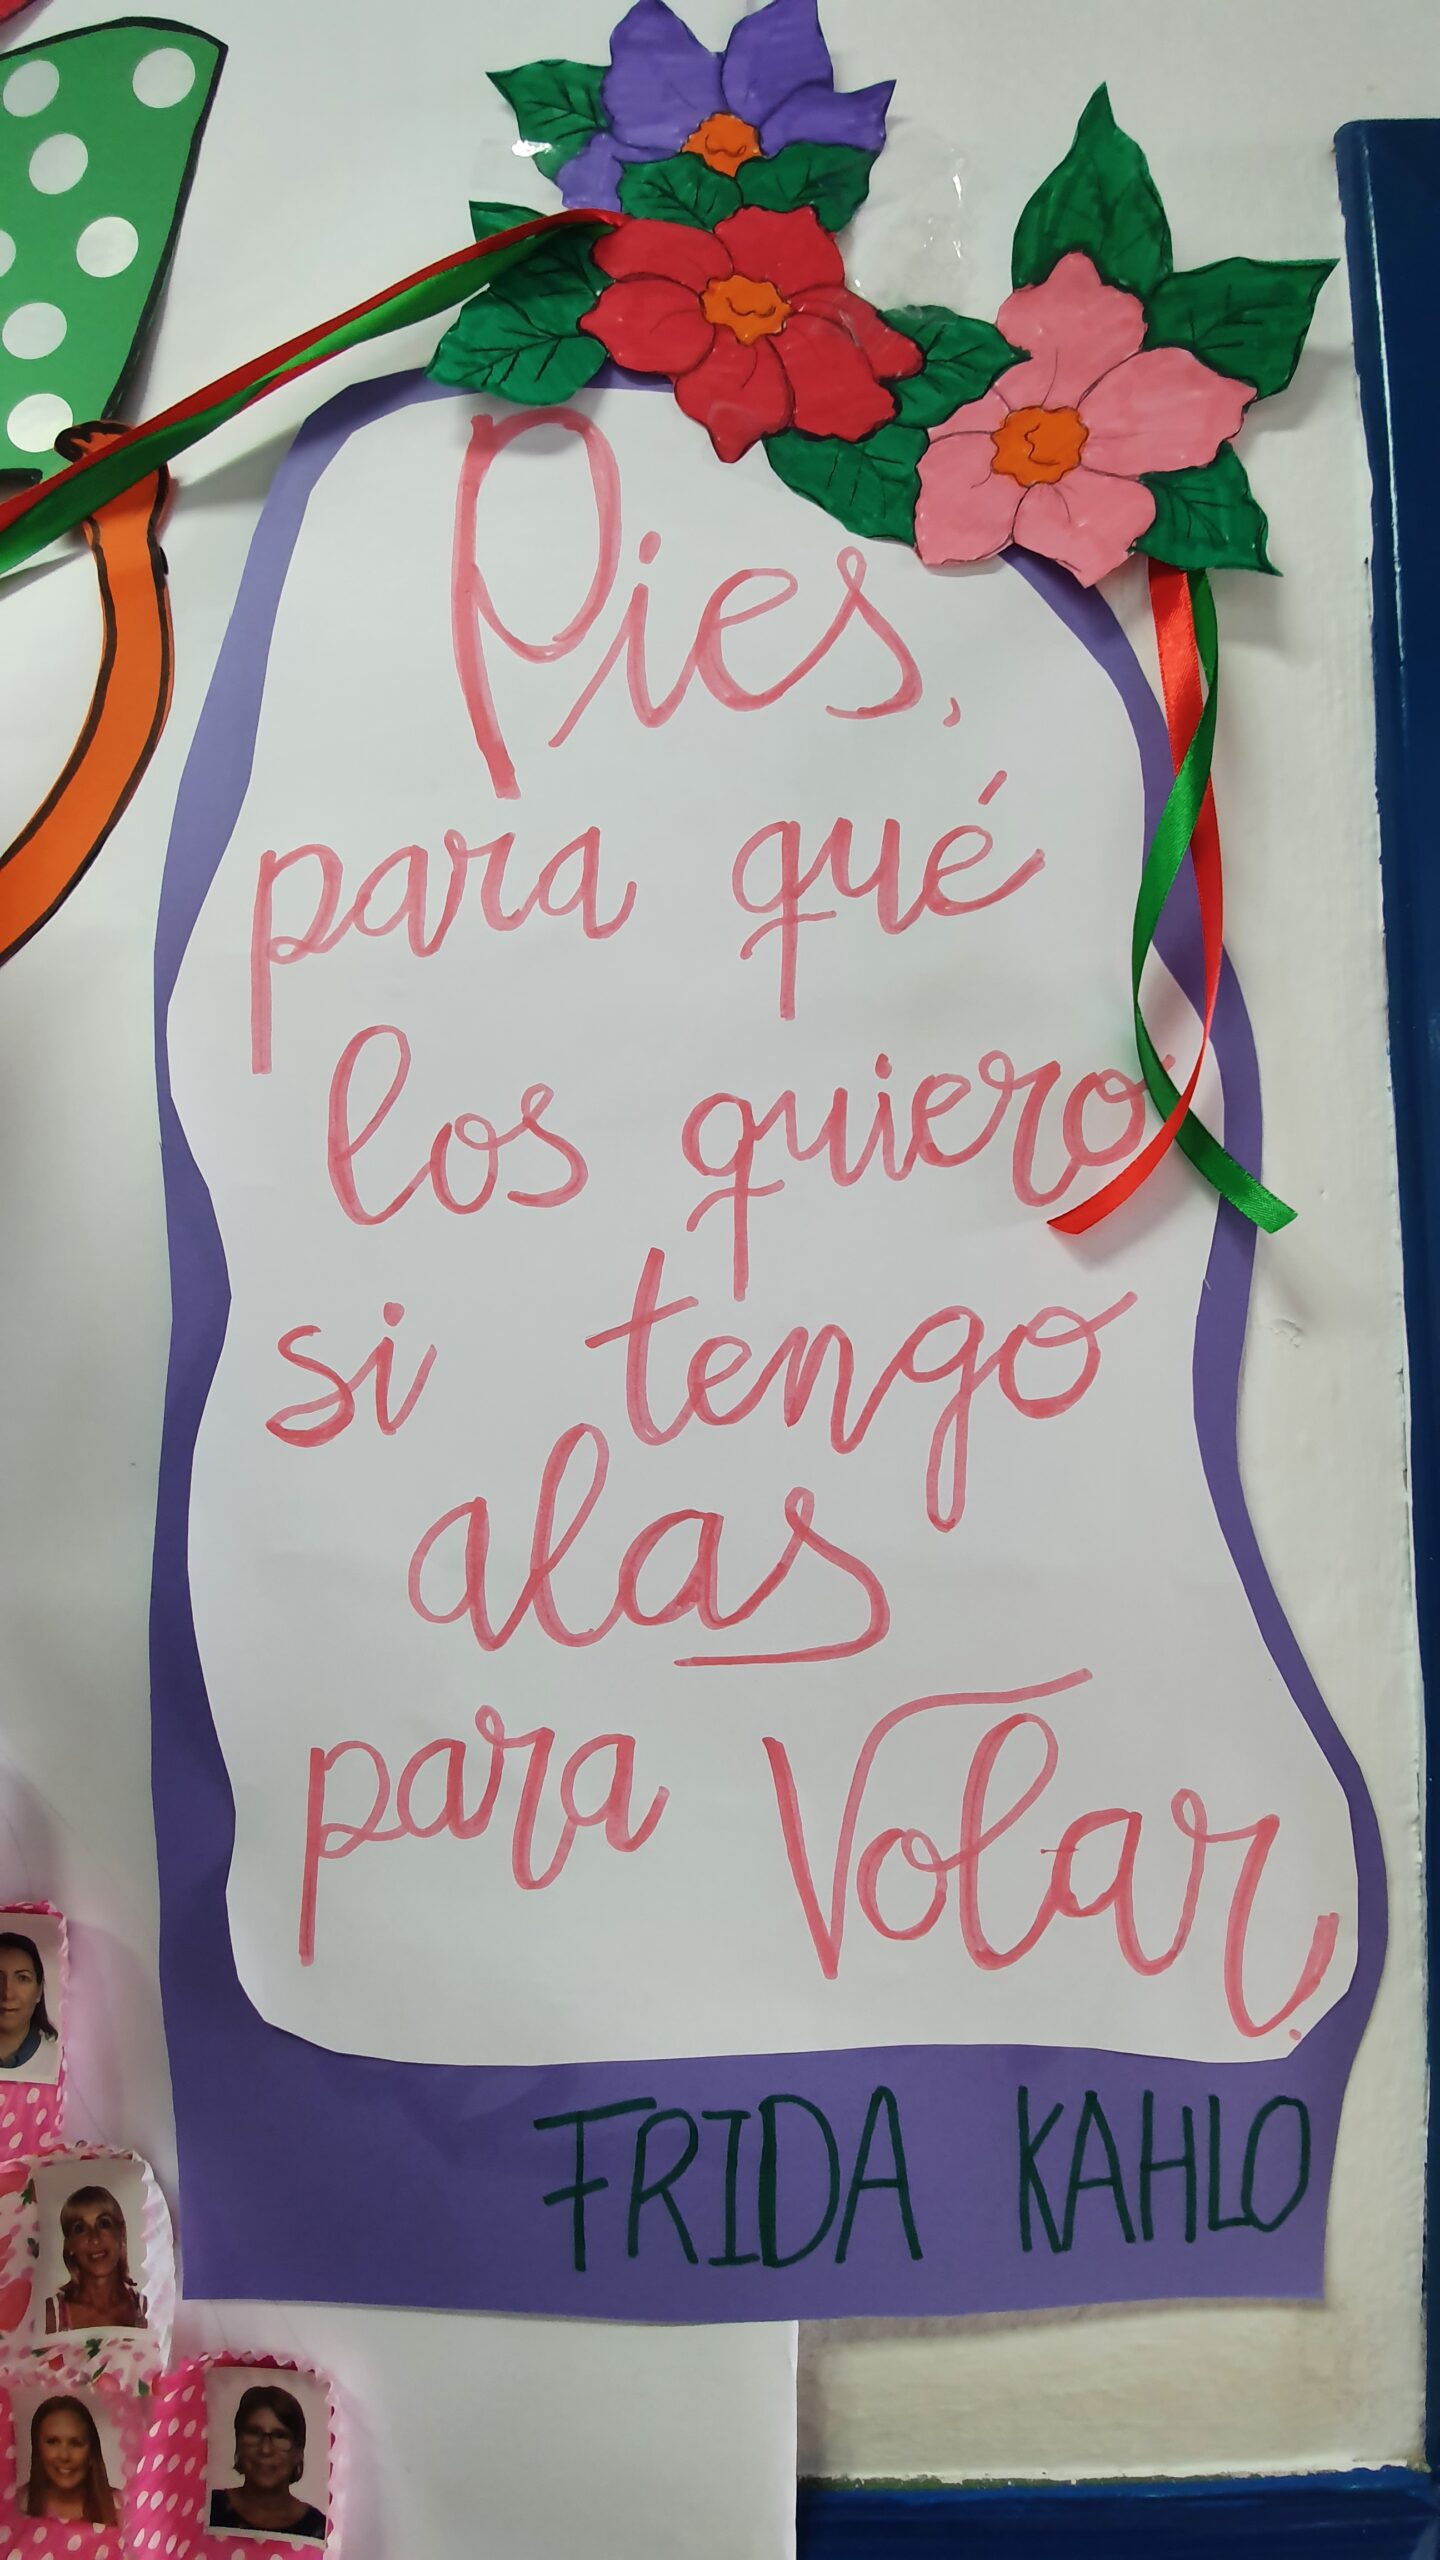 Pies,
para qué
los quiero
si tengo
alas
para Volar.
FRIDA KAHLO